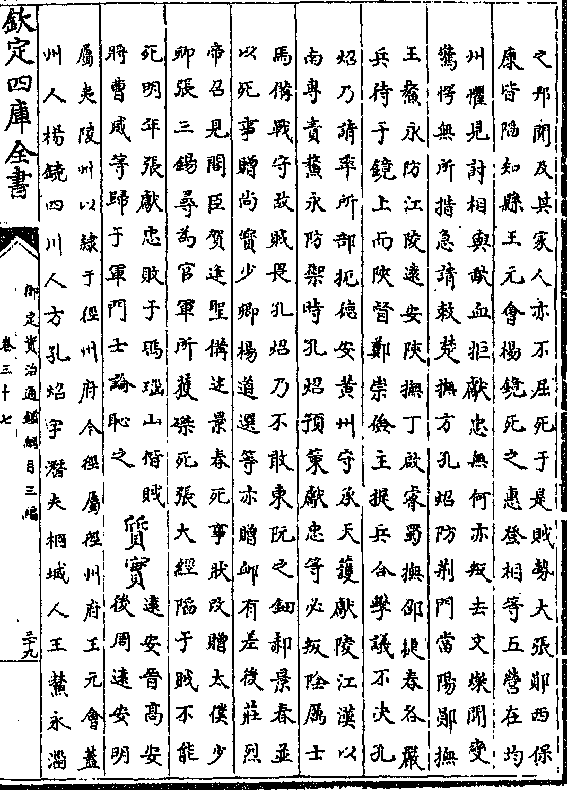 之邦聞及其家人亦不屈死于是賊勢大張鄖西保
康皆陷知縣王元會楊鏡死之惠登相等五營在均
州懼見討相與歃血拒獻忠無何亦叛去文燦聞變
驚愕無所措急請敕楚撫方孔炤防荆門當陽鄖撫
王鰲永防江陵遠安陜撫丁啟睿蜀撫邵捷春各嚴
兵待于鏡上而陜督鄭崇儉主提兵合擊議不決孔
炤乃請率所部扼德安黄州守承天護獻陵江漢以
南專責鰲永防禦時孔炤預策獻忠等必叛陰厲士
馬備戰守故賊畏孔炤乃不敢東阮之鈿郝景春並
以死事贈尚寳少卿楊道選等亦贈䘏有差後莊烈
帝召見閣臣賀逢聖備述景春死事狀改贈太僕少
卿張三錫尋為官軍所獲磔死張大經陷于賊不能
死明年張獻忠敗于瑪瑙山偕賊
將曹威等歸于軍門士論恥之
質實
遠安晉高安
後周遠安明
屬夷陵州以隸于徑州府今徑屬徑州府王元會蓋
州人楊鏡四川人方孔炤字潛夫桐城人王鰲永淄
欽定四庫全書
御定資治通鑑綱目三編
卷三十七
二九